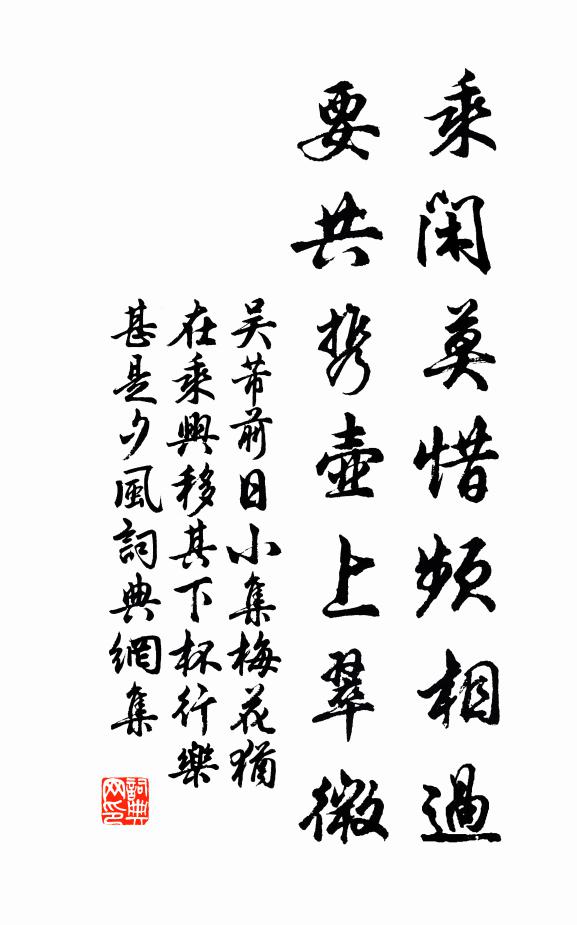 乘閑莫惜頻相過
要共携壺上翠微
吴芾前日小集梅花猶
在乘興移其下杯行樂
甚是夕風詞典網集
詞典
网印